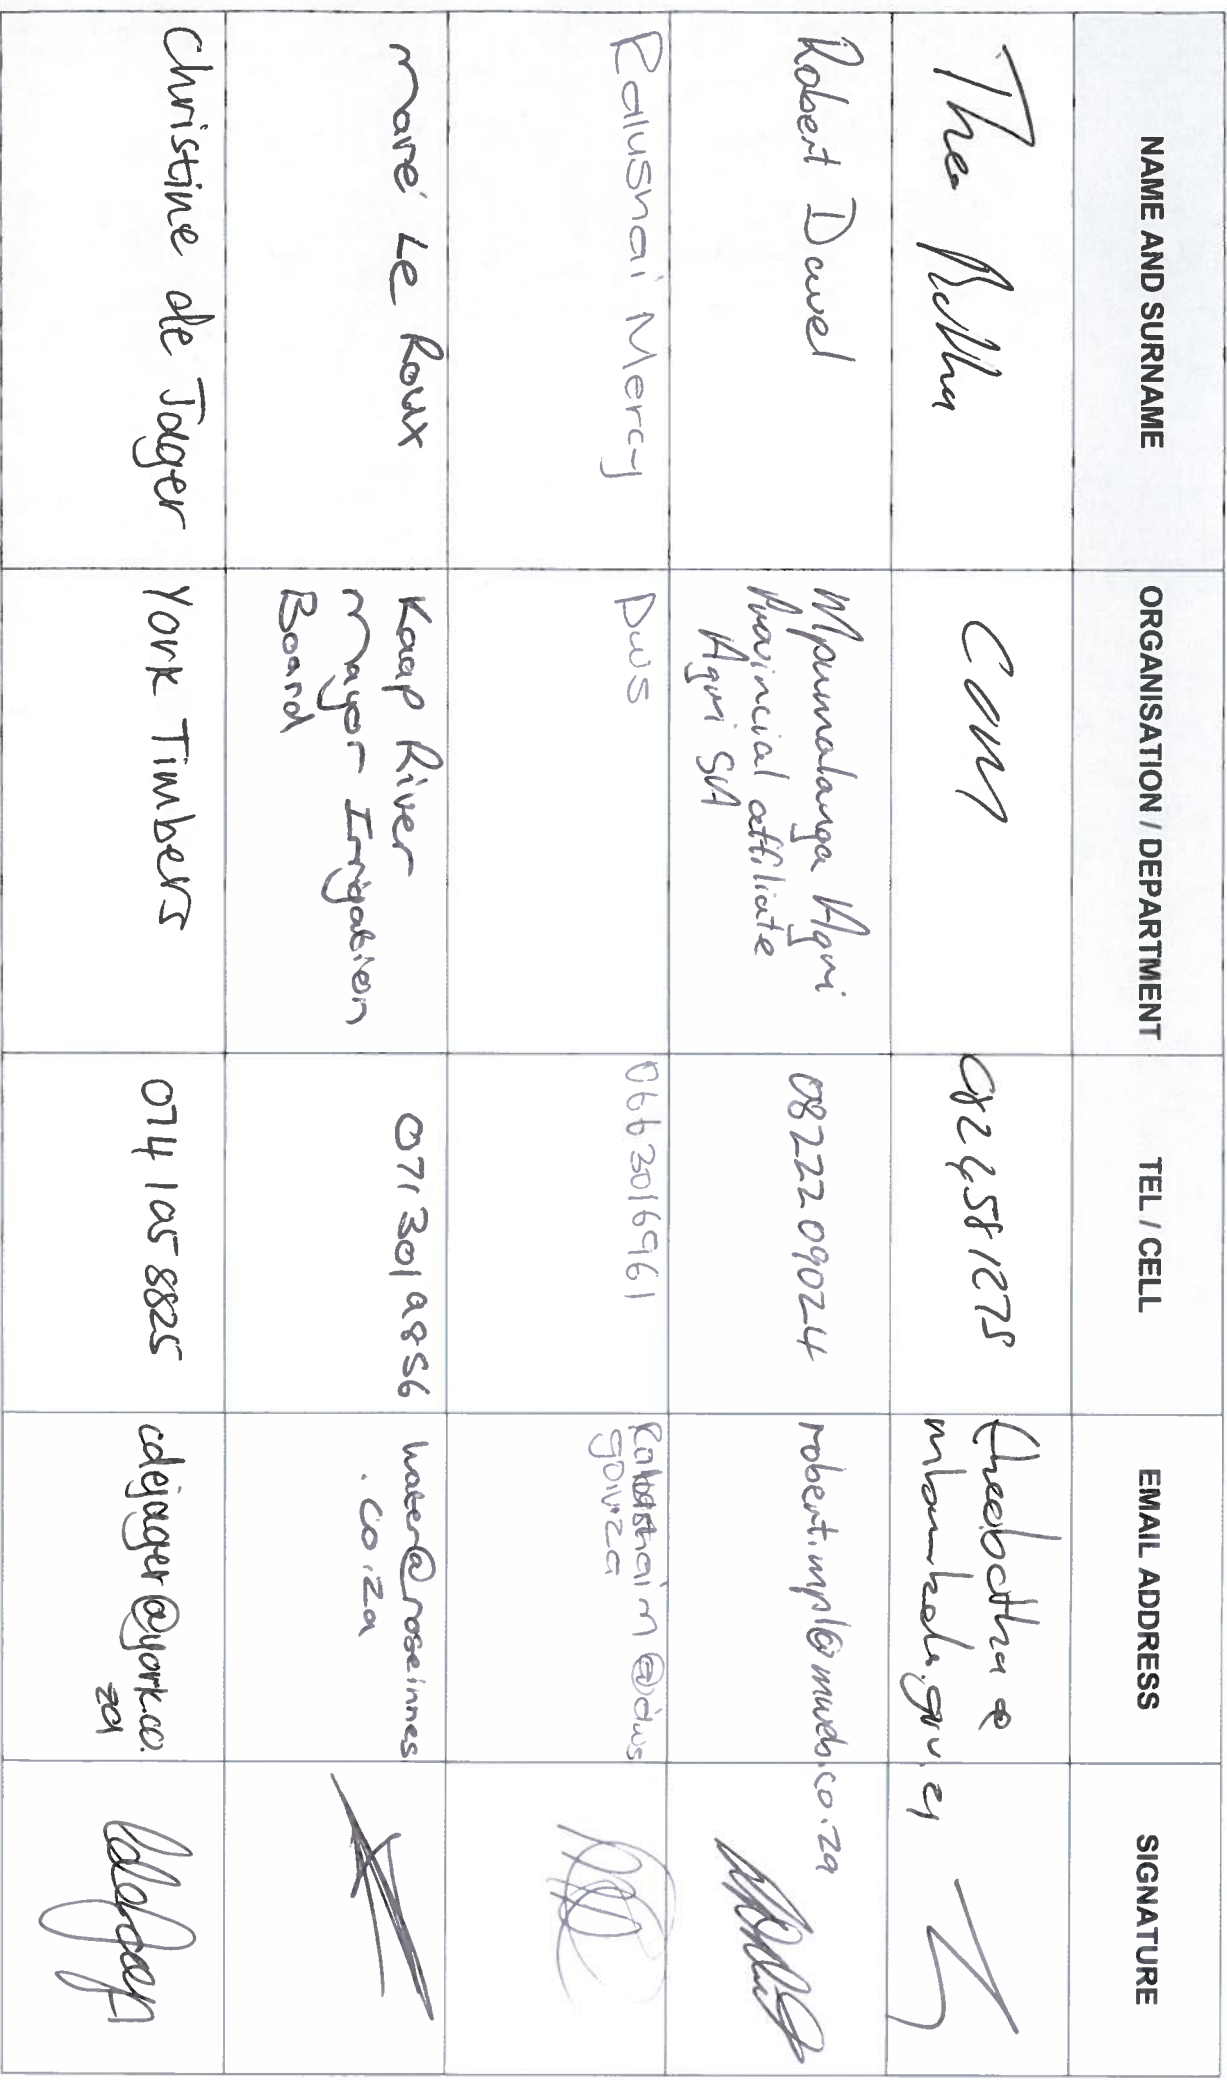 NAME AND SURNAME
ORGANISATION / DEPARTMENT
TEL / CELL
EMAIL ADDRESS
SIGNATURE
Theo
COM
theobotha@
Robert Davel
Mpumalanga Agri
Provincial affiliate
Agri SA
0822209024
robert.mpl@mweb.co.za
Ralushai Mercy
DWS
0663016961
@dws
gov.za
Maré Le Roux
Kaap River
Mayor Irrigation
Board
071 301 9856
water@roseinnes
.co.za
Christine de Jager
York Timbers
074 105 8825
cdejager@york.co.
za